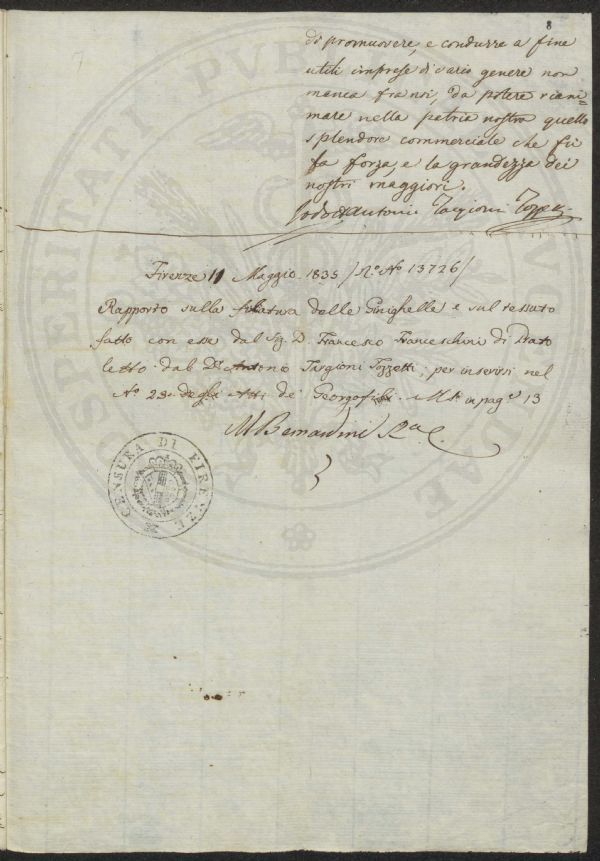 8
di promuovere, e condurre a fine
utili imprese di vario genere non
manca fra noi, da potere riani=
mare nella patria nostra quello
splendore commerciale che fù
la forza, e la grandezza dei
nostri maggiori.
Antonio Targioni Tozzetti
Firenze 11 Maggio 1835 / N.° A° 13726 /
Rapporto sulla filatura delle Sinighelle e sul tessuto
fatto con esse dal Sig. D. Francesco Franceschini di Prato
letto dal Dr Antonio Targioni Tozzetti; per inserirsi nel
N° 23. degli Atti de' Georgofili. in pag.e 13
M Bernardini
CENSURA DI FIRENZE
PROSPERITATI PUBLICAE